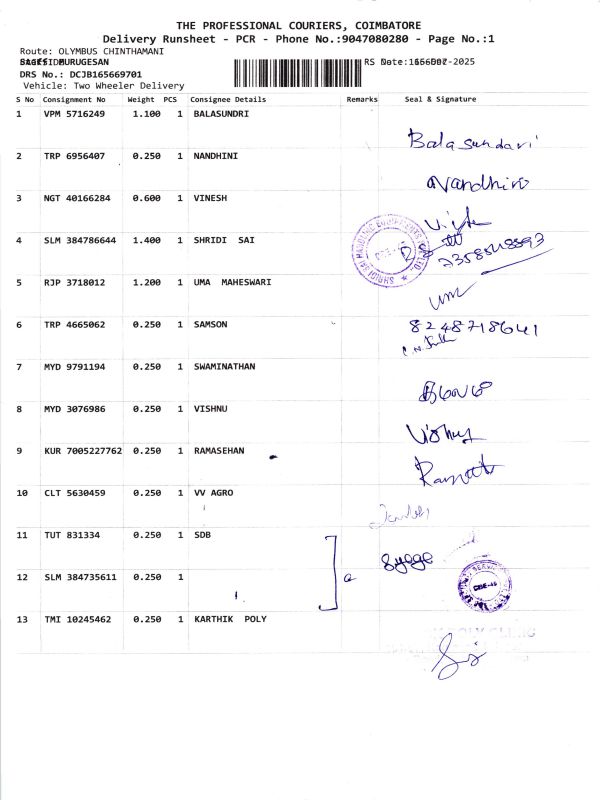 THE PROFESSIONAL COURIERS, COIMBATORE
Delivery Runsheet - PCR - Phone No.:9047080280 - Page No.:1
Route: OLYMBUS CHINTHAMANI
MURUGESAN
DRS No.: DCJB165669701
Vehicle: Two Wheeler Delivery
S No Consignment No Weight PCS Consignee Details Remarks Seal & Signature
1 VPM 5716249 1.100 1 BALASUNDRI
Balasundari
2 TRP 6956407 0.250 1 NANDHINI
Nandhini
3 NGT 40166284 0.600 1 VINESH
4 SLM 384786644 1.400 1 SHRIDI SAI
5 RJP 3718012 1.200 1 UMA MAHESWARI
6 TRP 4665062 0.250 1 SAMSON
8248718641
7 MYD 9791194 0.250 1 SWAMINATHAN
8 MYD 3076986 0.250 1 VISHNU
Vishnu
9 KUR 7005227762 0.250 1 RAMASEHAN
10 CLT 5630459 0.250 1 VV AGRO
11 TUT 831334 0.250 1 SDB
12 SLM 384735611 0.250 1
13 TMI 10245462 0.250 1 KARTHIK POLY